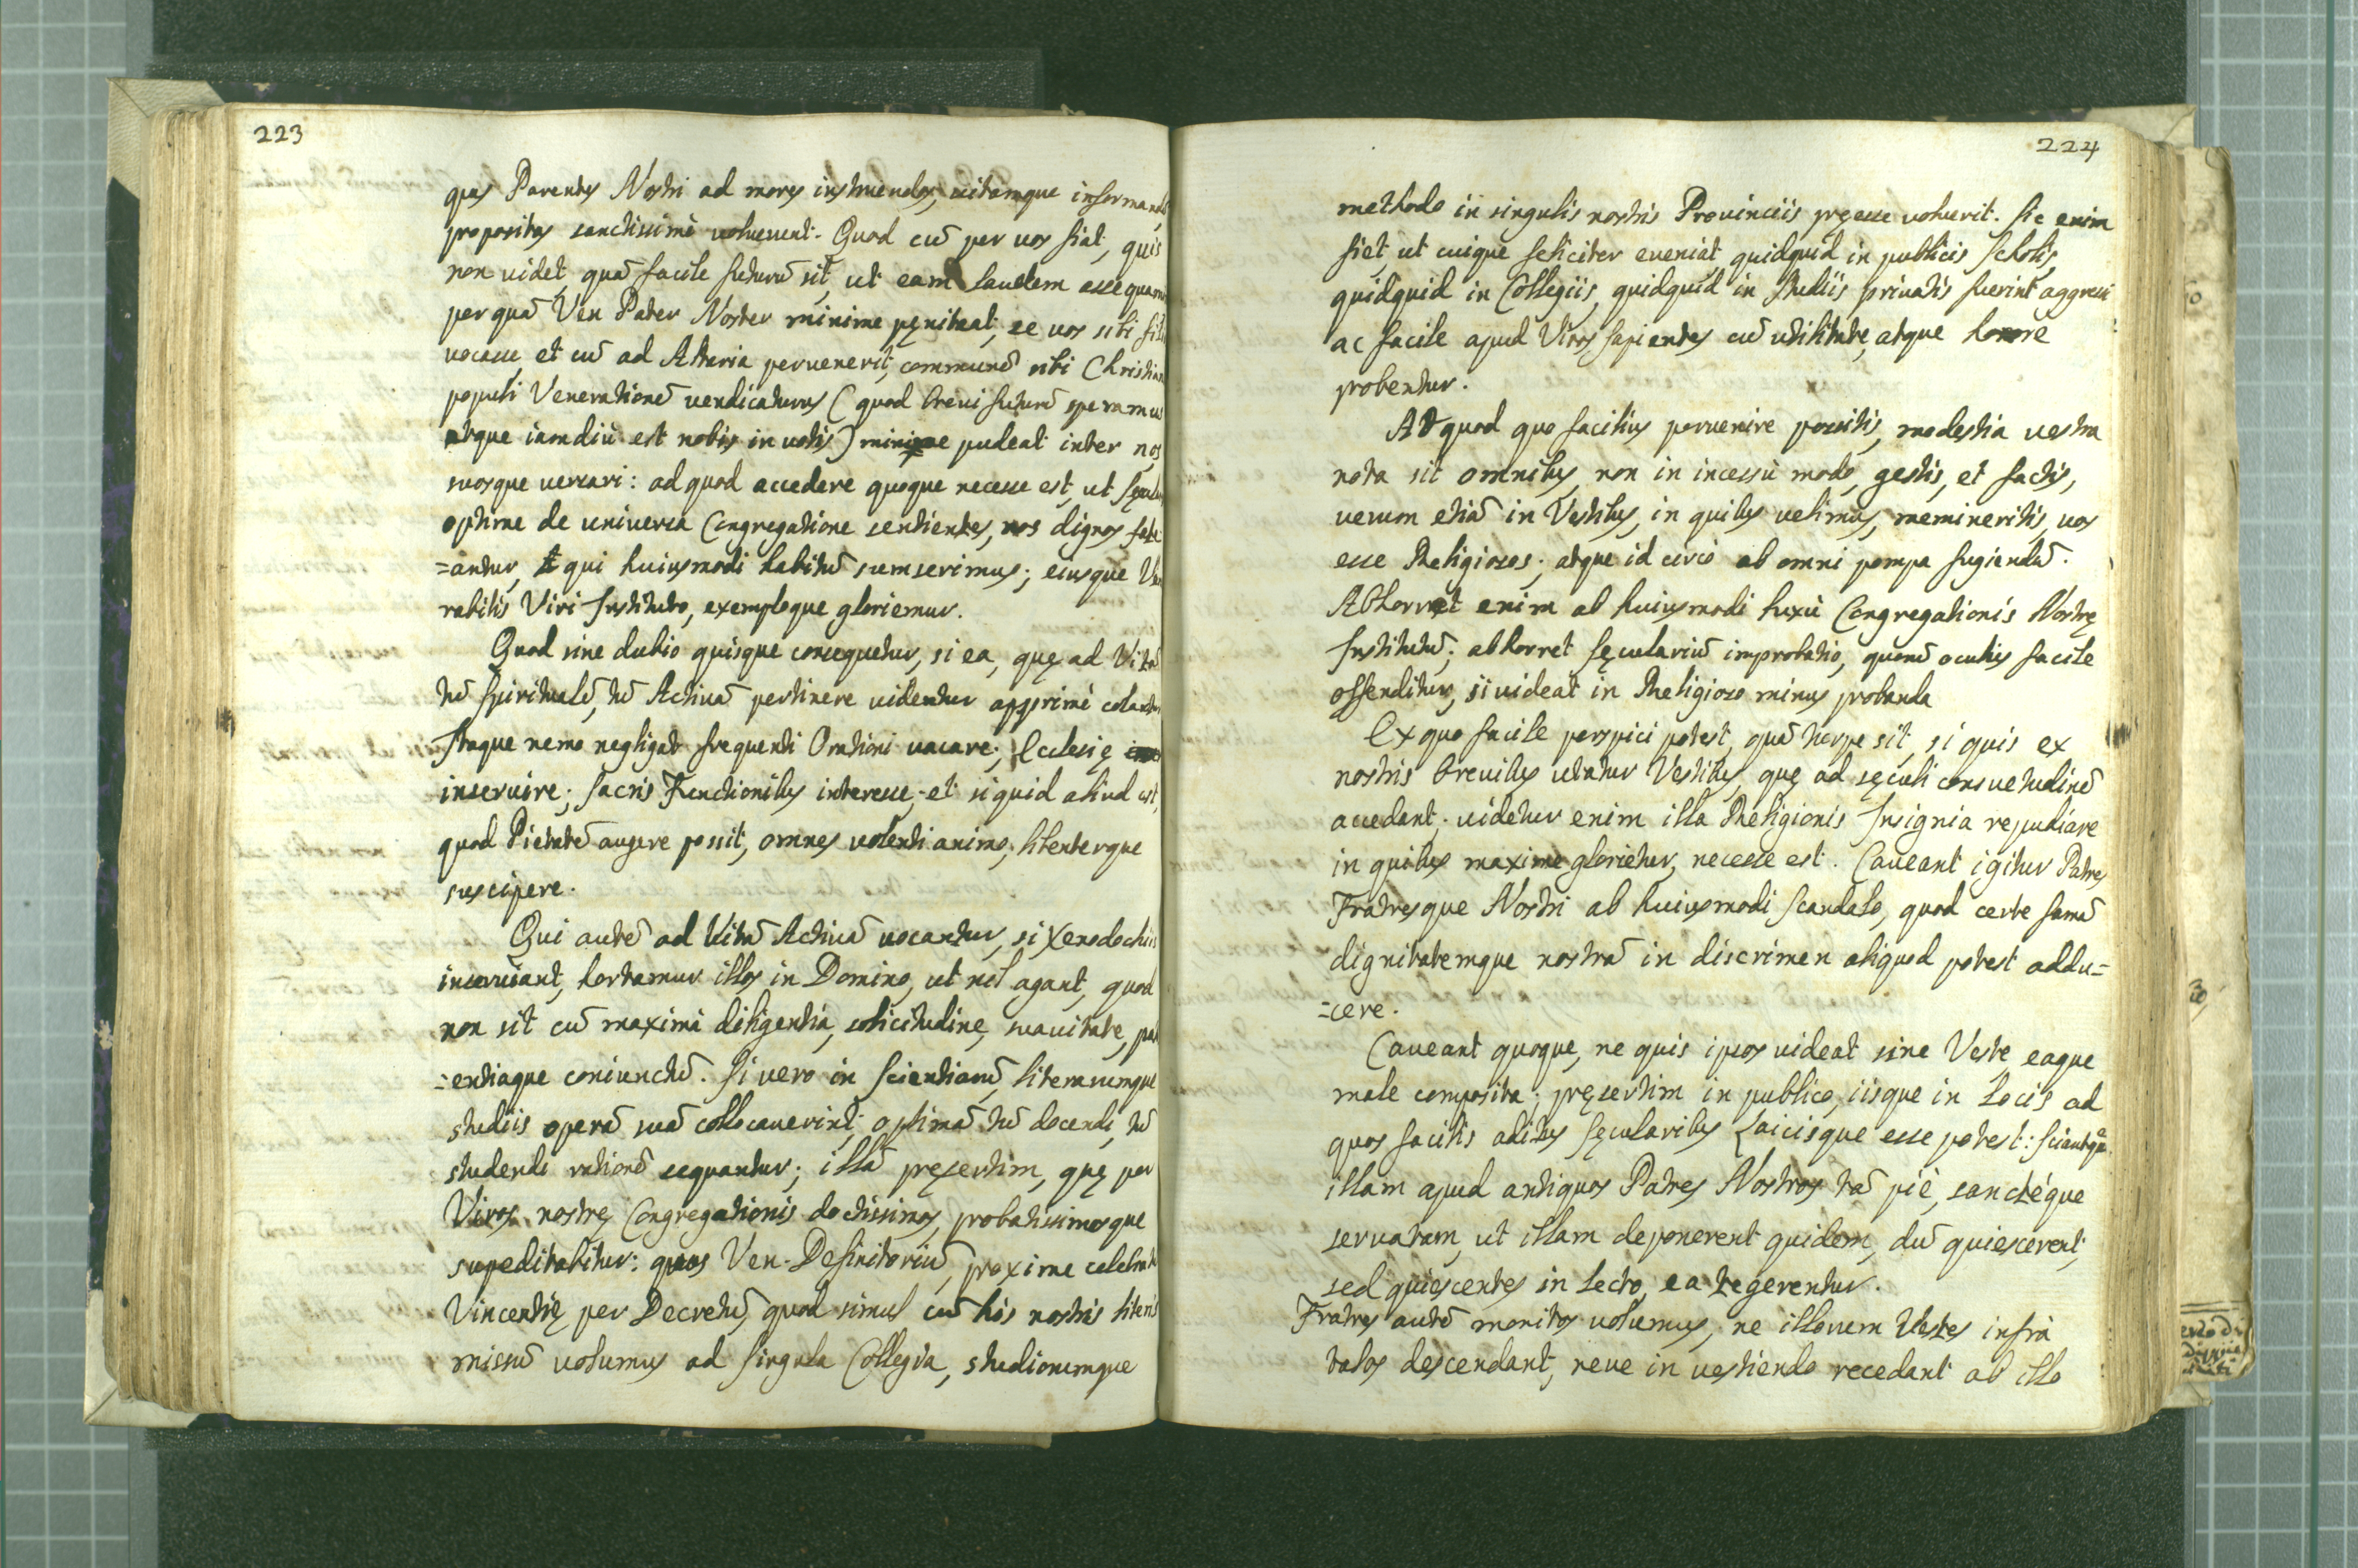 223
quas Parentes Nostri ad mores instruendos, uitamque informand
propositas sanctissimè uoluerunt. Quod cū per uos fiat, quis
non uidet, quā facile futurū sit, ut eam laudem assequam
per quā Ven Pater Noster minime pęniteat, se uos sibi fili
uocasse, et cū ad Altaria peruenerit, communē sibi Christian
populi Venerationē uendicaturus (quod breui futurū speramus
atque iamdiù est nobis in uotis) minime pudeat inter nos
suosque uersari: ad quod accedere quoque necesse est, ut Sęcula
optime de uniuersa Congregatione sentientes, nos dignos fate
=antur, qui huiusmodi habitū sumserimus; eiusque Ven
rabilis Viri Instituto, exemploque gloriemur.
Quod sine dubio quisque consequetur, si ea, quę ad Vitā
tū Spiritualē, tū Actiuā pertinere uidentur apprimè colantur
Itaque nemo negligat frequenti Orationi uacare; Ecclesię
inseruire; Sacris Functionibus interesse; et siquid aliud est,
quod Pietatē augere possit, omnes uolenti animo, libenterque
suscipere.
Qui autē ad Vitā Actiuā uocantur, si Xenodochiis
inseruiant, hortamur illos in Domino, ut nil agant, quod
non sit cū maximà diligentià, solicitudine, suauitate, pat
=entiaque coniunctū. Si uero in Scientiarū, literarumque
studiis operā suā collocauerint; optimā tū docendi, tū
studendi rationē sequantur; illā pręsertim, quę per
Viros nostrę Congregationis doctissimos, probatissimosque
supeditabitur: quos Ven. Definitoriū, proxime celebrat
Vincentię per Decretū, quod simul cū his nostris literis
missū uolumus ad singula Collegia, studiorumque
224
methodo in singulis nostris Prouinciis pręesse uoluerit. Sic enim
fiet, ut cuique feliciter eueniat quidquid in publicis Scholis,
quidquid in Collegiis, quidquid in Studiis priuatis fuerint aggressi
ac facile apud Viros sapientes cū utilitate, atque honore
probentur.
Ad quod quo facilius peruenire possitis, modestia uestra
nota sit omnibus, non in incessù modo, gestis, et factis,
uerum etiā in Vestibus, in quibus uelimus, memineritis, uos
esse Religiosos; atque id circò ab omni pompa fugiendū.
Abhorret enim ab huiusmodi luxù Congregationis Nostrę
Institutū; abhorret sęculariū improbatio, quorū oculus facile
offenditur, si uideat in Religioso minus probanda
Ex quo facile perspici potest, quā turpe sit, si quis ex
nostris breuibus utatur Vestibus, quę ad sęculi consuetudinē
accedant; uidetur enim illa Religionis Insignia repudiare
in quibus maxime glorietur, necesse est. Caueant igitur Patres
Fratresque Nostri ab huiusmodi scandalo, quod certe famā
dignitatemque nostrā in discrimen aliquod potest addu=
=cere.
Caueant quoque, ne quis ipsos uideat sine Veste, eaque
male composita; pręsertim in publico, iisque in Locis ad
quos facilis aditus sęcularibus Laicisque esse potest: sciantque
illam apud antiquos Patres Nostros tā piè, sanctèque
seruatam, ut illam deponerent quidem, dū quiescerent;
sed quiescentes in Lecto, ea tegerentur.
Fratres autē monitos uolumus, ne illorum Vestes infrà
talos descendant, neue in uestiendo recedant ab illo